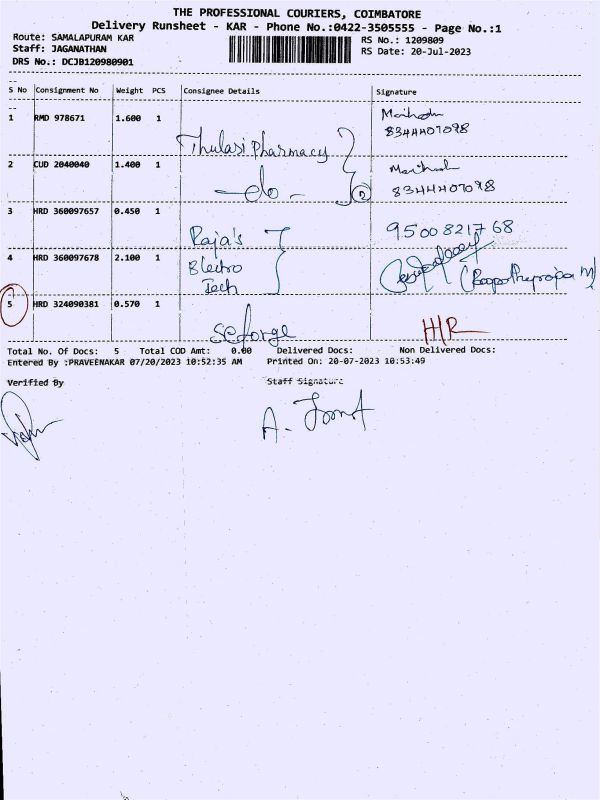 THE PROFESSIONAL COURIERS, COIMBATORE
Delivery Runsheet - KAR - Phone No.:0422-3505555 - Page No.:1
Route: SAMALAPURAM KAR
RS No.: 1209809
Staff: JAGANATHAN
RS Date: 20-Jul-2023
DRS No.: DCJB120980901
S No Consignment No Weight PCS Consignee Details Signature
1 RMD 978671 1.600 1 Thulasi Pharmacy 8344407098
2 CUD 2040040 1.400 1 -do- 2 8344407098
3 HRD 360097657 0.450 1 Raja's 9500821768
4 HRD 360097678 2.100 1 Electro
Tech
5 HRD 324090381 0.570 1 seforge H/R
Total No. Of Docs: 5 Total COD Amt: 0.00 Delivered Docs: Non Delivered Docs:
Entered By :PRAVEENAKAR 07/20/2023 10:52:35 AM Printed On: 20-07-2023 10:53:49
Verified By Staff Signature